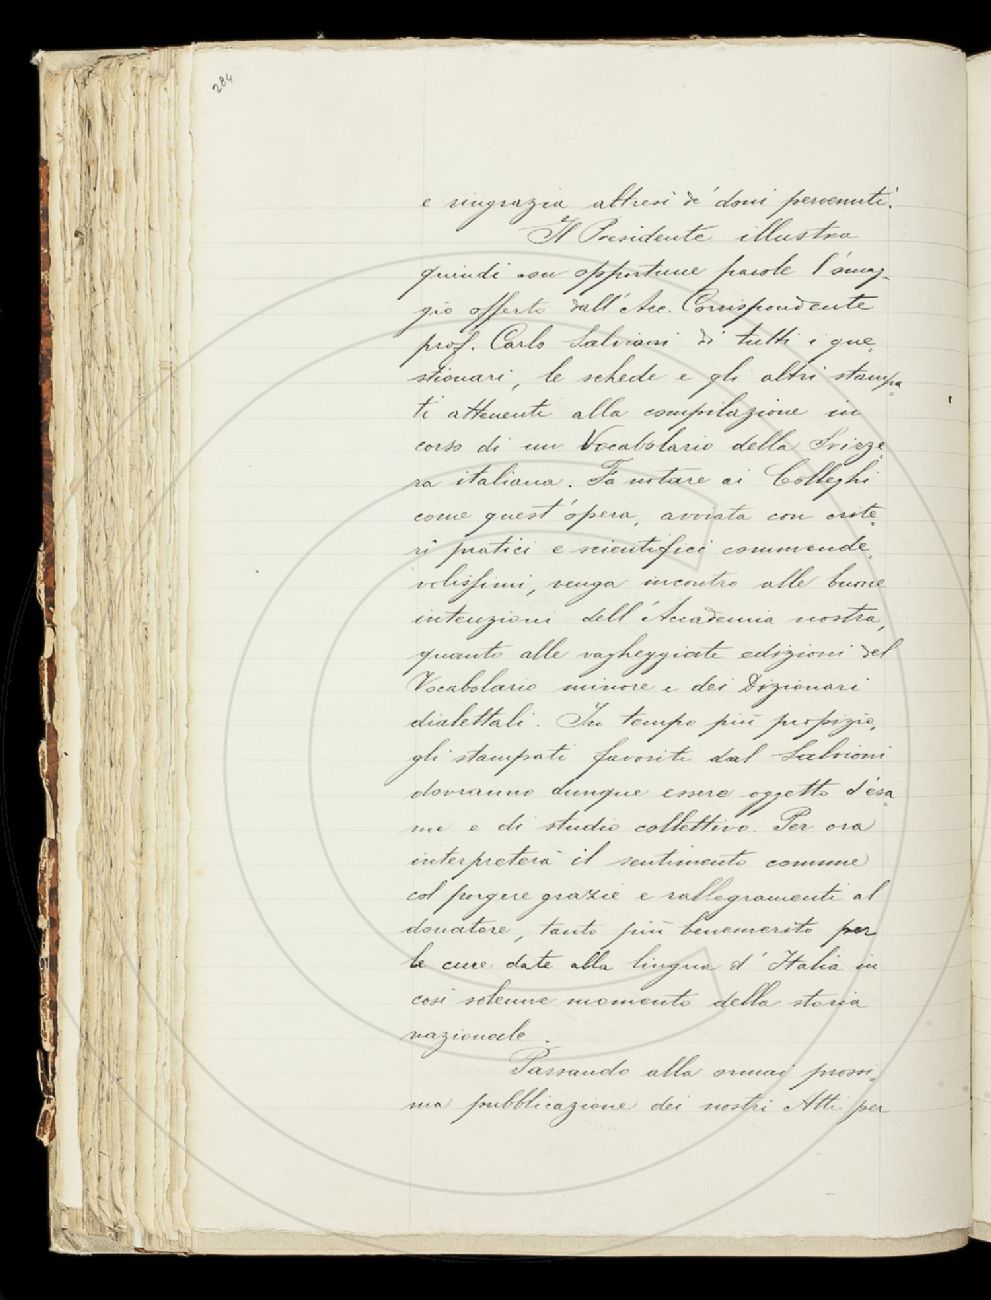 284
e ringrazia altresì de' doni pervenuti.
Il Presidente illustra
quindi con opportune parole l'omag-
gio offerto dall'Acc. Corrispondente
prof. Carlo Salvioni di tutti i que-
stionari, le schede e gli altri stampa-
ti attenenti alla compilazione in
corso di un Vocabolario della Svizze-
ra italiana. Fa notare ai Colleghi
come quest'opera, avviata con crite-
rî pratici e scientifici commende-
volissimi, venga incontro alle buone
intenzioni dell'Accademia nostra,
quanto alle vagheggiate edizioni del
Vocabolario minore e dei Dizionari
dialettali. In tempo più propizio,
gli stampati favoriti dal Salvioni
dovranno dunque essere oggetto d'esa-
me e di studio collettivo. Per ora
interpreterà il sentimento comune
col porgere grazie e rallegramenti al
donatore, tanto più benemerito per
le cure date alla lingua d'Italia in
così solenne momento della storia
nazionale.
Passando alla ormai prossi-
ma pubblicazione dei nostri Atti per